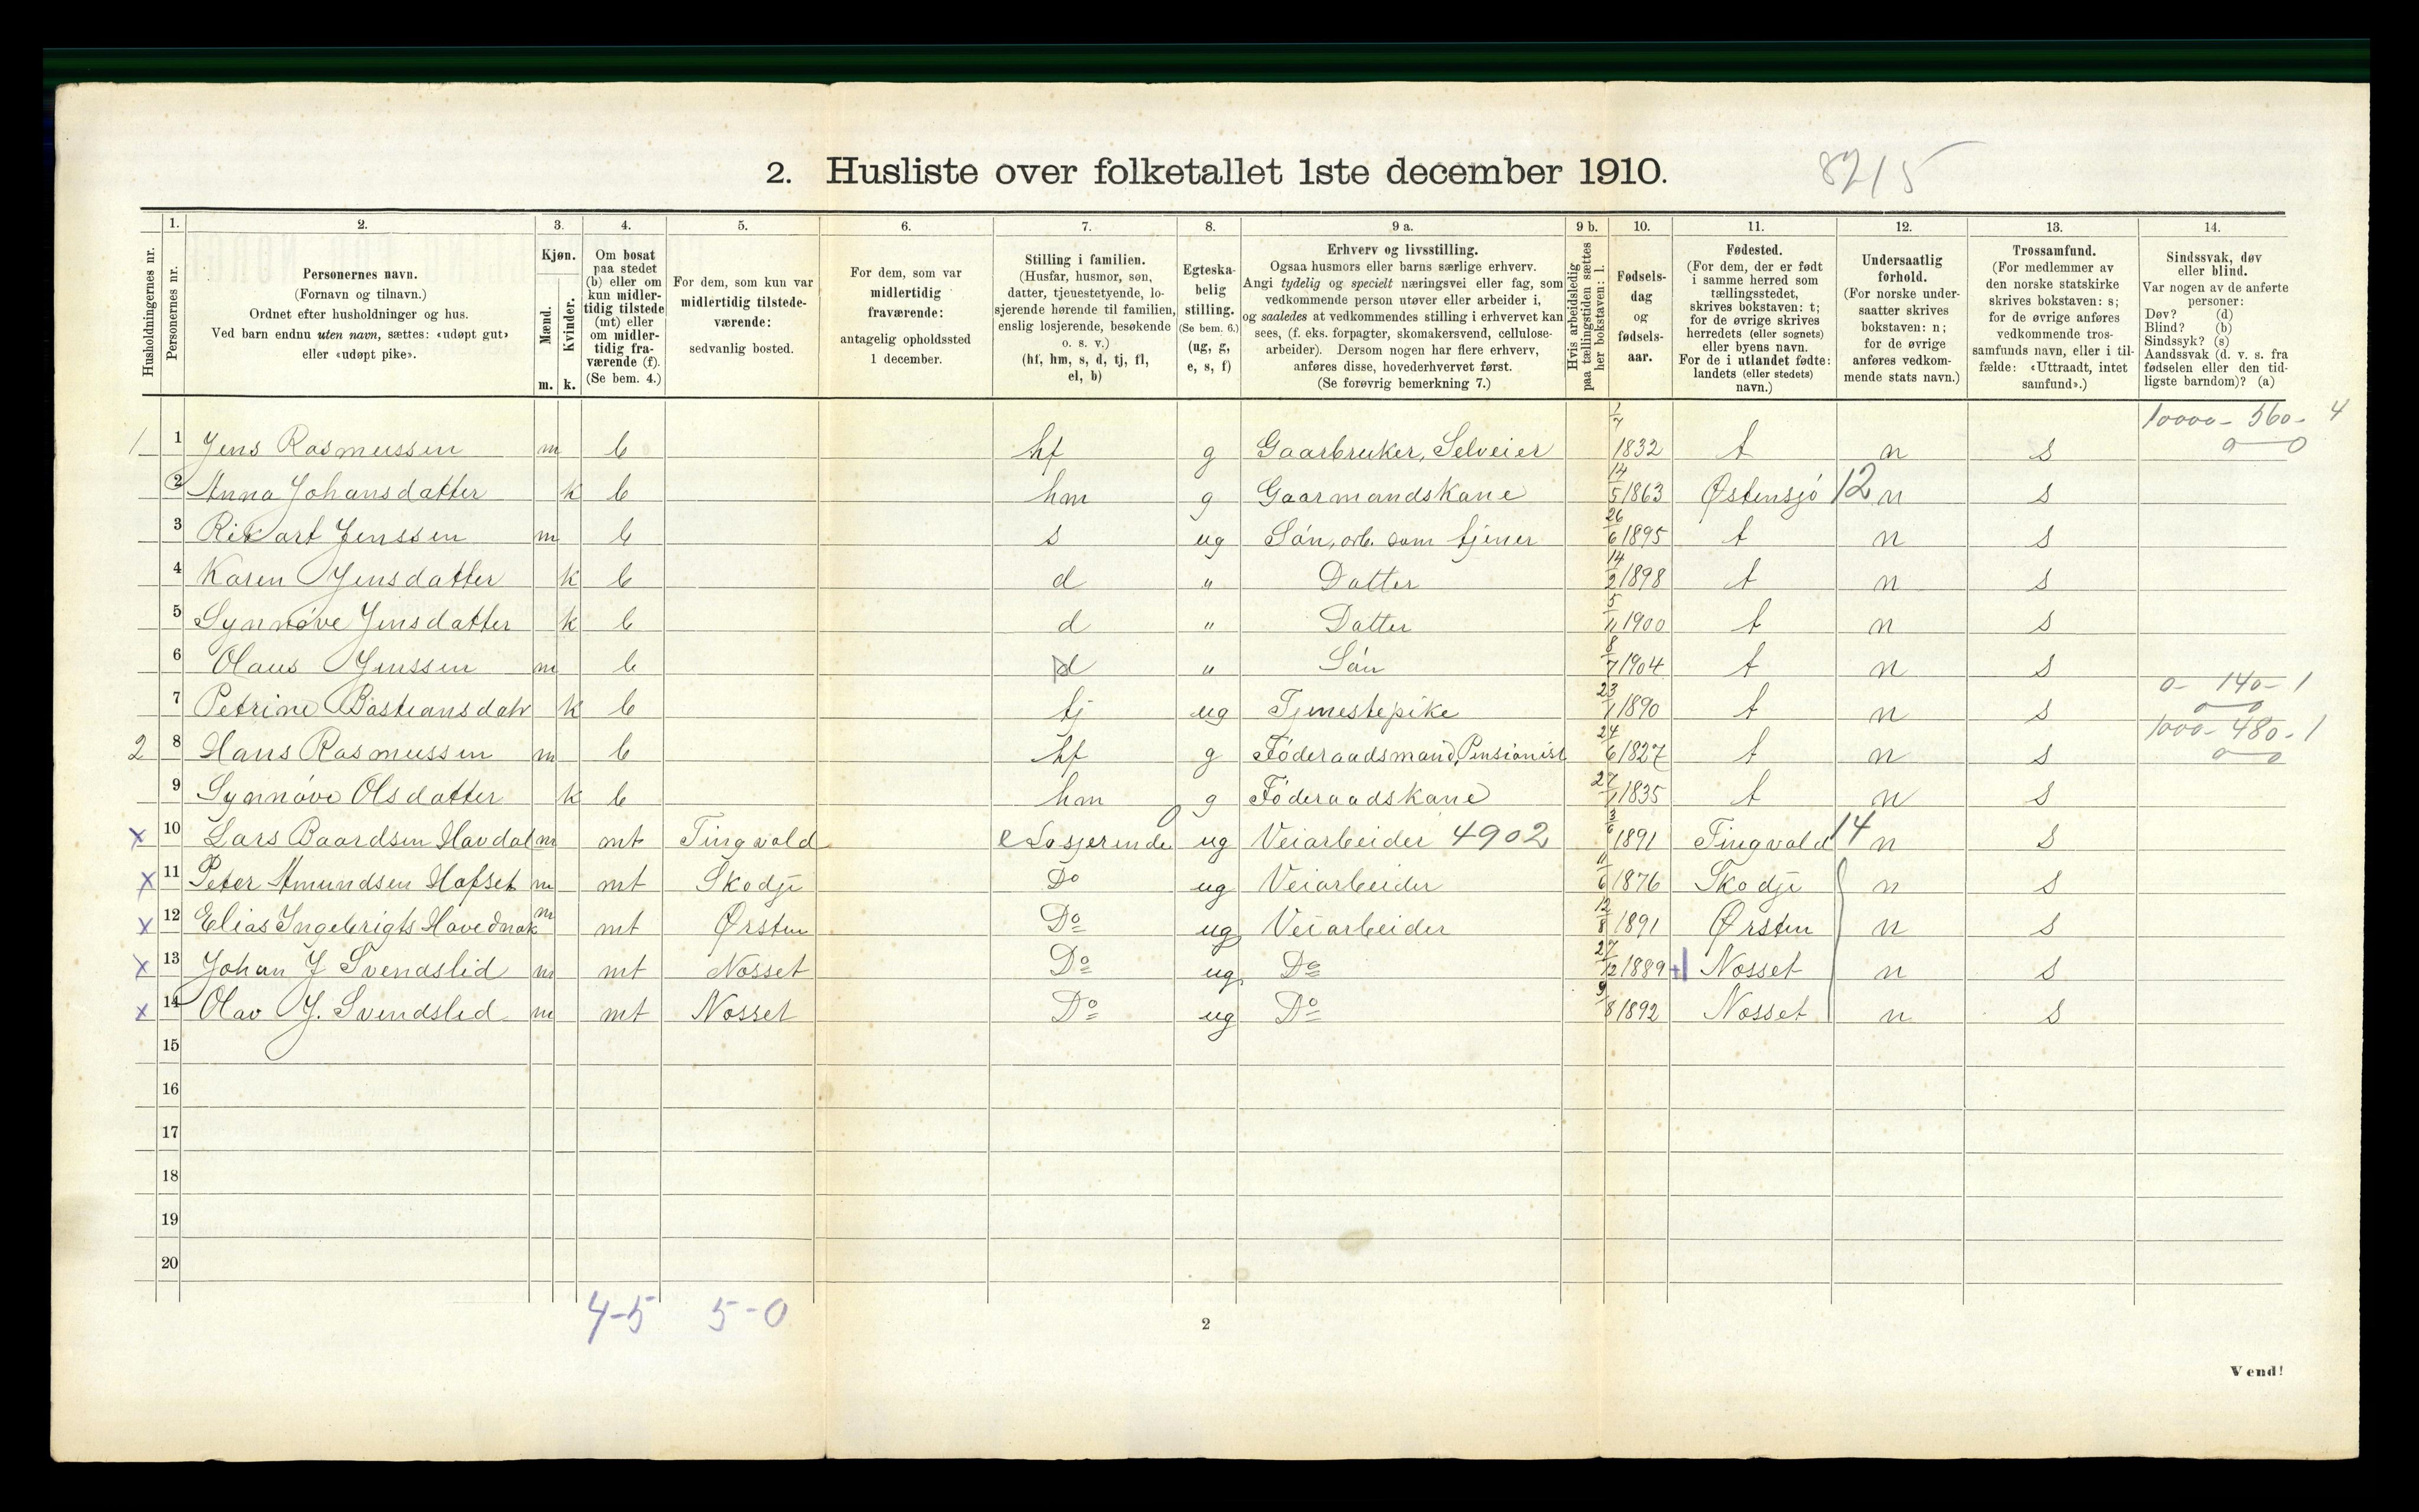 2. Husliste over folketallet 1ste december 1910.
82/5
Husholdningernes nr.
1. Personernes nr.
2. Personernes navn.
(Fornavn og tilnavn.)
Ordnet efter husholdninger og hus.
Ved barn endnu uten navn, sættes: «udøpt gut»
eller «udøpt pike».
3. Kjøn.
Mænd. m.
Kvinder. k.
4. Om bosat
paa stedet
(b) eller om
kun midler-
tidig tilstede
(mt) eller
om midler-
tidig fra-
værende (f).
(Se bem. 4.)
5. For dem, som kun var
midlertidig tilstede-
værende:
sedvanlig bosted.
6. For dem, som var
midlertidig
fraværende:
antagelig opholdssted
1 december.
7. Stilling i familien.
(Husfar, husmor, søn,
datter, tjenestetyende, lo-
sjerende hørende til familien,
enslig losjerende, besøkende
o. s. v.)
(hf, hm, s, d, tj, fl,
el, b)
8. Egteska-
belig
stilling.
(Se bem. 6.)
(ug, g,
e, s, f)
9 a. Erhverv og livsstilling.
Ogsaa husmors eller barns særlige erhverv.
Angi tydelig og specielt næringsvei eller fag, som
vedkommende person utøver eller arbeider i,
og saaledes at vedkommendes stilling i erhvervet kan
sees, (f. eks. forpagter, skomakersvend, cellulose-
arbeider). Dersom nogen har flere erhverv,
anføres disse, hovederhvervet først.
(Se forøvrig bemerkning 7.)
9 b. Hvis arbeidsledig
paa tællingstiden sættes
her bokstaven: l.
10. Fødsels-
dag
og
fødsels-
aar.
11. Fødested.
(For dem, der er født
i samme herred som
tællingsstedet,
skrives bokstaven: t;
for de øvrige skrives
herredets (eller sognets)
eller byens navn.
For de i utlandet fødte:
landets (eller stedets)
navn.)
12. Undersaatlig
forhold.
(For norske under-
saatter skrives
bokstaven: n;
for de øvrige
anføres vedkom-
mende stats navn.)
13. Trossamfund.
(For medlemmer av
den norske statskirke
skrives bokstaven: s;
for de øvrige anføres
vedkommende tros-
samfunds navn, eller i til-
fælde: «Uttraadt, intet
samfund».)
14. Sindssvak, døv
eller blind.
Var nogen av de anførte
personer:
Døv? (d)
Blind? (b)
Sindssyk? (s)
Aandssvak (d. v. s. fra
fødselen eller den tid-
ligste barndom)? (a)
1 1 Jens Rasmussen m b hf g Gaarbruker, Selveier 1/7 1832 t n s 10000 - 560 - 4 0 0
2 Anna Johansdatter k b hm g Gaarmandskane 14/5 1863 Østensjø 12 n s
3 Rikart Jenssen m b s ug Søn, arb. som tjener 26/6 1895 t n s
4 Karen Jensdatter k b d " Datter 14/2 1898 t n s
5 Synnøve Jensdatter k b d " Datter 5/11 1900 t n s
6 Olaus Jenssen m b " Søn 8/7 1904 t n s
7 Petrine Bastiansdatr k b tj ug Tjenestepike 23/1 1890 t n s 0 - 140 - 1 0 0
2 8 Hans Rasmussen m b hf g Føderaadsmand, Pensionist 24/6 1827 t n s 1000 - 480 - 1 0 0
9 Synnøve Olsdatter k b hm g Føderaadskane 27/1 1835 t n s
x 10 Lars Baardsen Havdal m mt Tingvold e Losjerende ug Veiarbeider 4902 3/6 1891 Tingvold 14 n s
x 11 Peter Amundsen Hafset m mt Skodje Do ug Veiarbeider 11/6 1876 Skodje n s
x 12 Elias Ingebrigts Havednak m mt Ørsten Do ug Veiarbeider 12/8 1891 Ørsten n s
x 13 Johan J Svendslid m mt Nosset Do ug Do 27/12 1889 Nosset n s
x 14 Olav J. Svendslid m mt Nosset Do ug Do 9/8 1892 Nosset n s
15
16
17
18
19
20
4-5 5-0
2
Vend!